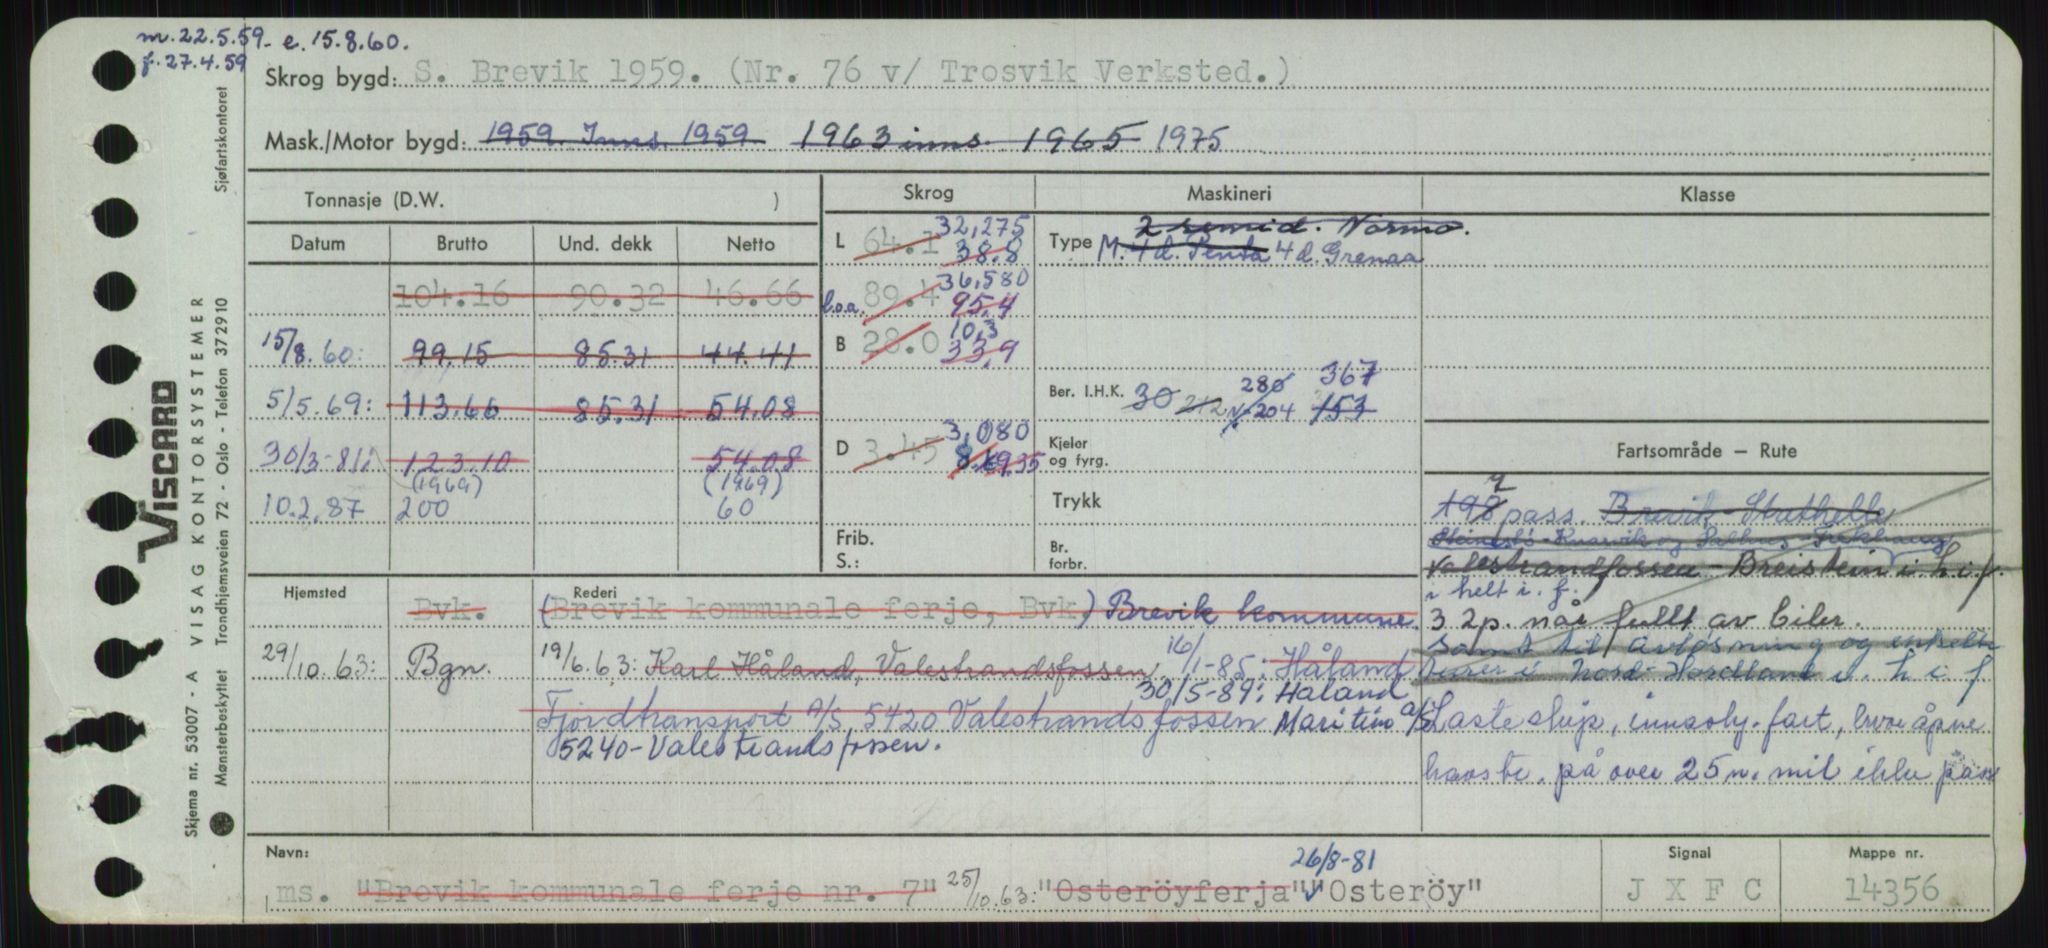 m. 22.5.59. e. 15.8.60.
f. 27.4.59
Skrog bygd: S. Brevik 1959. (Nr. 76 v/ Trosvik Verksted.)
Mask./Motor bygd: 1959. Inns. 1959 1963 inns. 1965 1975
Tonnasje (D.W. )
Skrog
Maskineri
Klasse
Datum Brutto Und. dekk Netto
104.16 90.32 46.66
15/8.60: 99.15 85.31 44.41
5/5.69: 113.66 85.31 54.08
30/3-81: 123.10 54.08
(1969) (1969)
10.2.87 200 60
L 64.1 32,275
38.8
l.o.a. 89.4 36,580
95,4
B 28.0 10,3
33,9
D 3.45 3,080
9.35
Frib.
S.:
Type
M. 4 d. Penta 4 d. Grenaa
Ber. I.H.K. 30 212 N-204 280 153 367
Kjeler
og fyrg.
Trykk
Br.
forbr.
Fartsområde – Rute
pass. Brevik-Stathelle
Steinestø-Knarvik og Salhus-Frekhaug
Valestrandfossen - Breistein i h.i.f.
i helt i. f.
3 2p. når fullt av biler.
samt til avløsning og enkelte
turer i Nord-Hordland i h i f
Lasteskip, innsky. fart, hvor åpne
havstr. på over 25 n. mil ikke pass
Hjemsted
Rederi
Bvk. (Brevik kommunale ferje, Bvk) Brevik kommune.
29/10.63: Bgn. 19/6.63: Karl Håland, Valestrandsfossen 16/1-85: Håland
30/5-89: Håland
Fjordtransport A/S, 5420 Valestrandsfossen Maritim a/s
5240-Valestrandsfossen.
Navn:
26/8-81
ms. "Brevik kommunale ferje nr. 7" 25/10.63: "Osteröyferja" "Osteröy"
Signal
J X F C
Mappe nr.
14356
VISCARD
Skjema nr. 53007 - A VISAG KONTORSYSTEMER
Mønsterbeskyttet Trondhjemsveien 72 - Oslo - Telefon 372910
Sjøfartskontoret